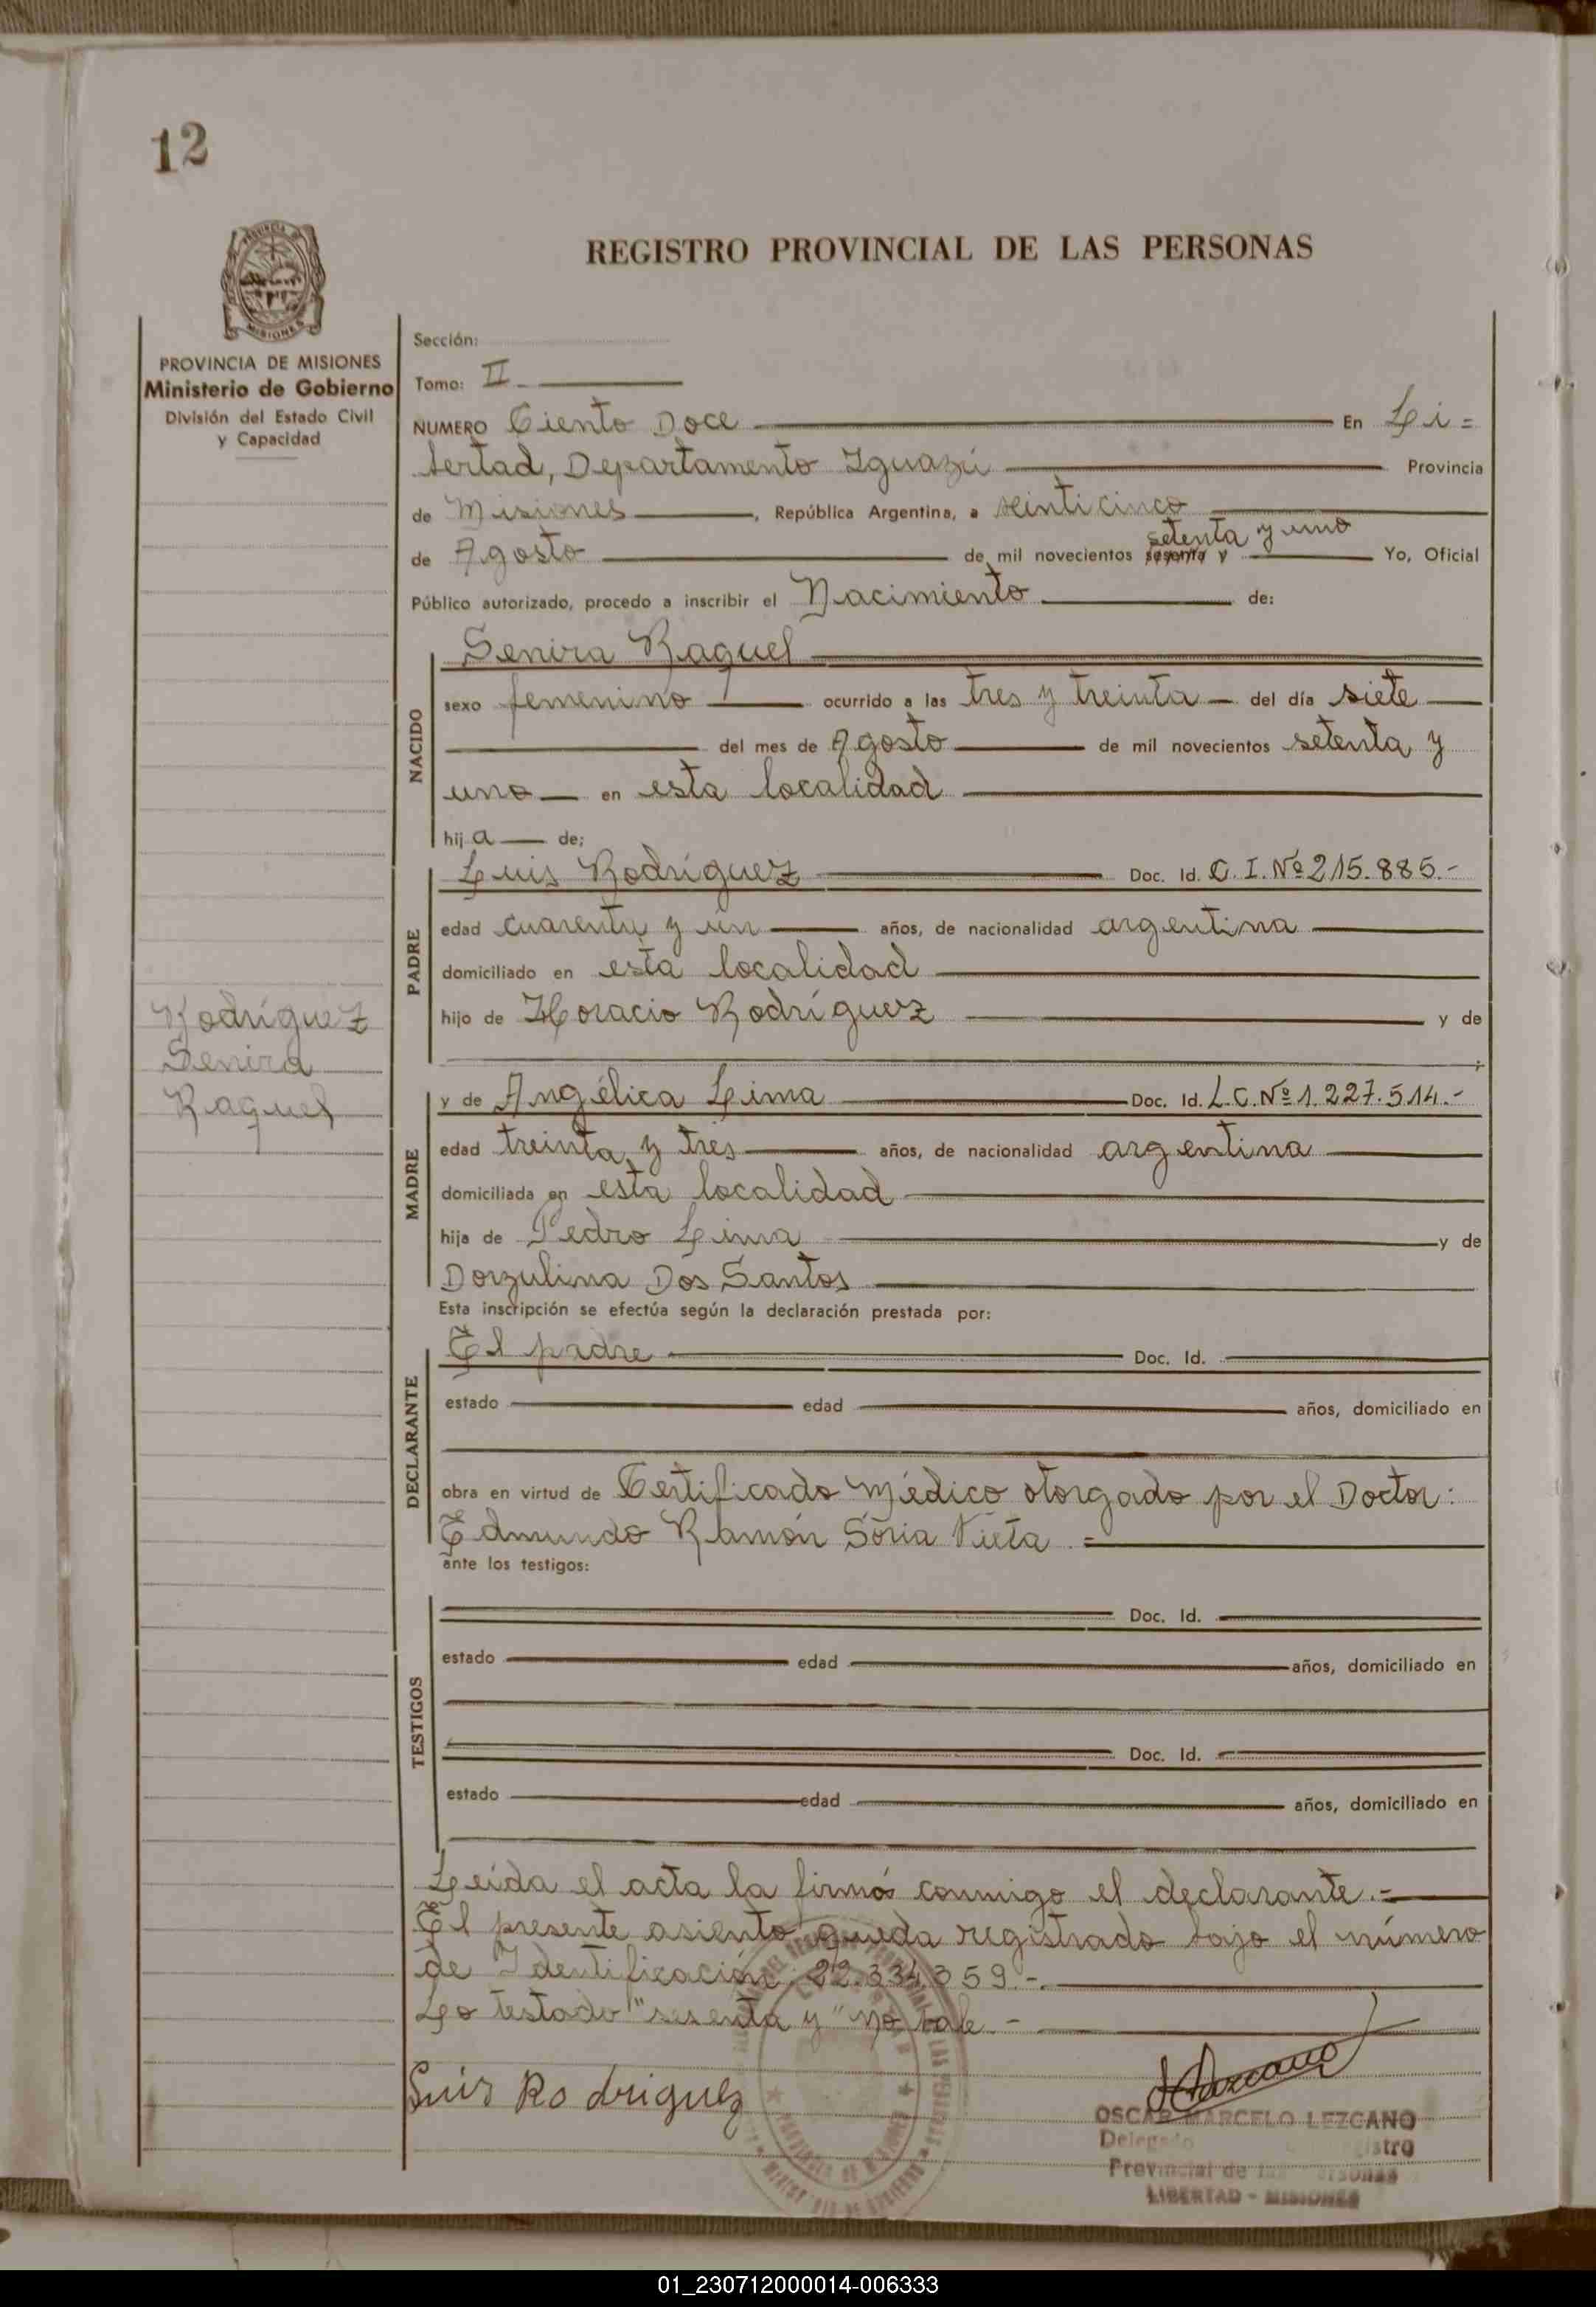 12
REGISTRO PROVINCIAL DE LAS PERSONAS
MISIONES
PROVINCIA DE MISIONES
Ministerio de Gobierno
División del Estado Civil
y Capacidad
Rodríguez
Senira
Raquel
Sección:
Tomo: II
NUMERO Ciento Doce En Li =
bertad, Departamento Iguazú Provincia
de Misiones, República Argentina, a veinticinco
setenta y uno
de Agosto de mil novecientos sesenta y Yo, Oficial
Público autorizado, procedo a inscribir el Nacimiento de:
NACIDO
Senira Raquel
sexo femenino ocurrido a las tres y treinta del día siete
del mes de Agosto de mil novecientos setenta y
uno en esta localidad
hija de;
PADRE
Luis Rodríguez Doc. Id. C. I. Nº 215.885.-
edad cuarenta y un años, de nacionalidad argentina
domiciliado en esta localidad
hijo de Horacio Rodríguez y de
MADRE
y de Angélica Lima Doc. Id. L.C. Nº 1.227.514.-
edad treinta y tres años, de nacionalidad argentina
domiciliada en esta localidad
hija de Pedro Lima y de
Dorzulina Dos Santos
Esta inscripción se efectúa según la declaración prestada por:
DECLARANTE
El padre Doc. Id.
estado edad años, domiciliado en
obra en virtud de Certificado Médico otorgado por el Doctor:
Edmundo Ramón Soria Vieta.=
ante los testigos:
TESTIGOS
Doc. Id.
estado edad años, domiciliado en
Doc. Id.
estado edad años, domiciliado en
Leída el acta la firmó conmigo el declarante.-
El presente asiento queda registrado bajo el número
de Identificación: 22.334.359.-
Lo testado "sesenta y" no vale.-
Luis Rodriguez
OSCAR MARCELO LEZCANO
Delegado Registro
Provincial de las Personas
LIBERTAD - MISIONES
01_230712000014-006333